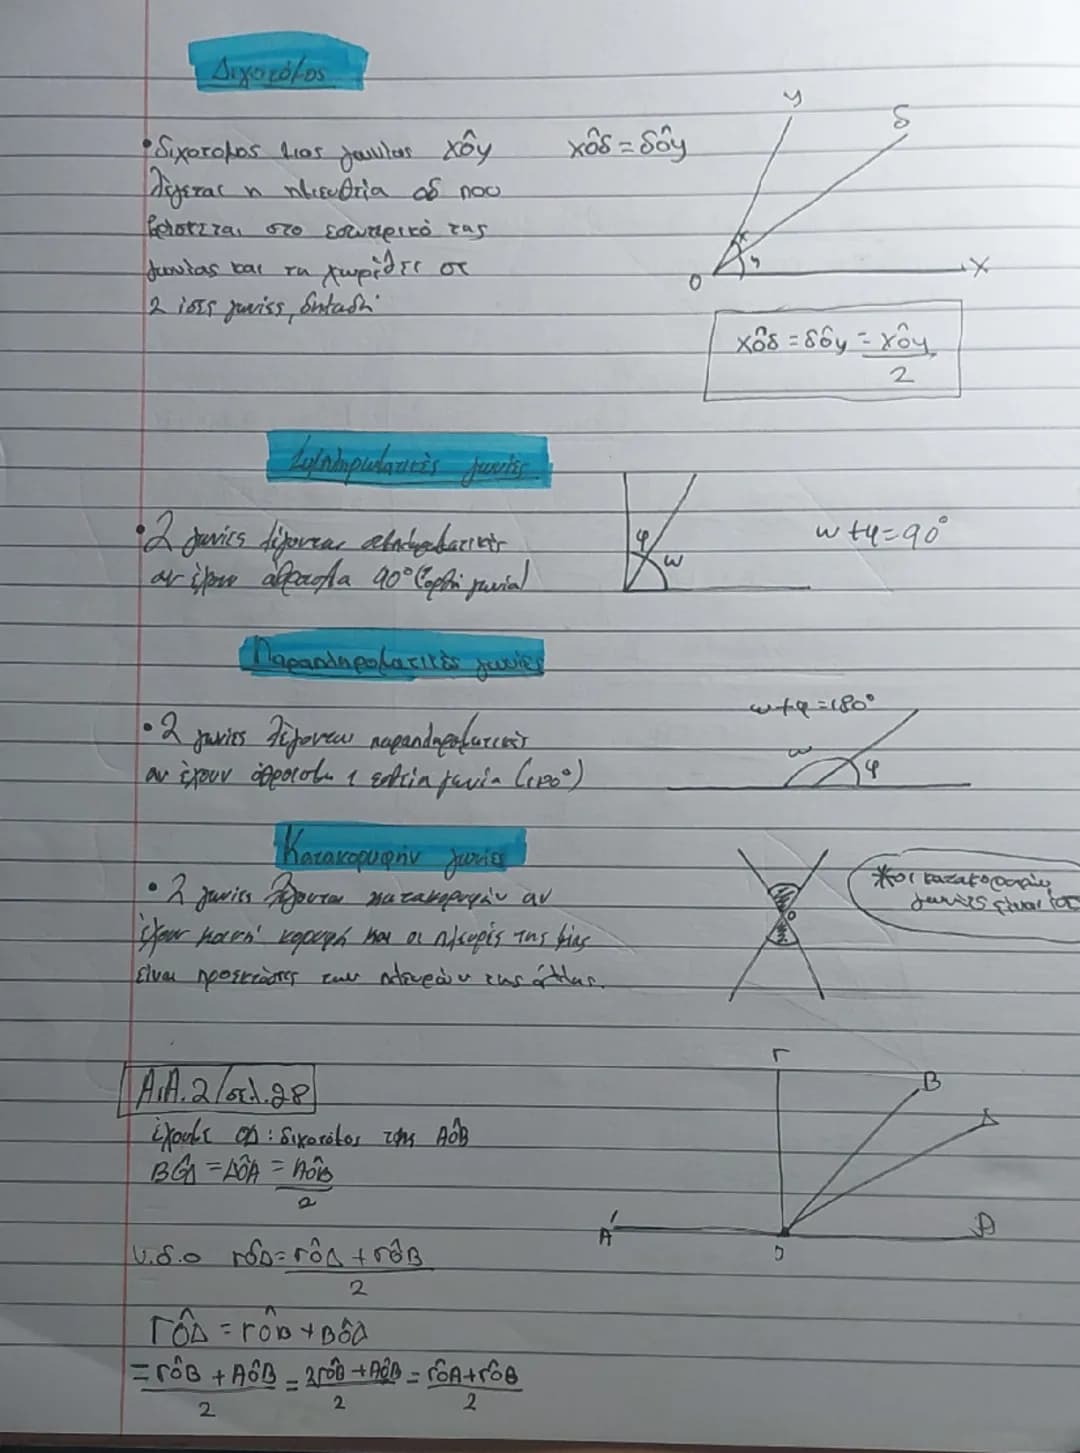 Διχοτόμος
• διχοτόμος μιας γωνίας xôy
λέγεται η ημιευθεία οδ που
βρίσκεται στο εσωτερικό της
γωνίας και τη χωρίζει σε
2 ίσες γωνίες, δηλαδή
xôδ = δôy
y
δ
O
x
xôδ = δôy = xôy
2
Συμπληρωματικές γωνίες
• 2 γωνίες λέγονται συμπληρωματικές
αν έχουν άθροισμα 90° (ορθή γωνία)
φ
ω
ω+φ=90°
Παραπληρωματικές γωνίες
• 2 γωνίες λέγονται παραπληρωματικές
αν έχουν άθροισμα 1 ευθεία γωνία (180°)
ω+φ=180°
ω
φ
Κατακορυφήν γωνίες
• 2 γωνίες λέγονται κατακορυφήν αν
έχουν κοινή κορυφή και οι πλευρές της μίας
είναι προεκτάσεις των πλευρών της άλλης.
O
*οι κατακορυφήν
γωνίες είναι ίσε
Α.Α.2/σελ.28
έχουμε ΟΔ: διχοτόμος της ΑÔΒ
ΒÔΔ = ΔÔΑ = ΑÔΒ
2
Γ
Β
Δ
Α'
Ο
Α
ν.δ.ο ΓÔΔ = ΓÔΑ + ΓÔΒ
2
ΓÔΔ = ΓÔΒ + ΒÔΔ
= ΓÔΒ + ΑÔΒ = 2ΓÔΒ + ΑÔΒ = ΓÔΑ + ΓÔΒ
2 2 2